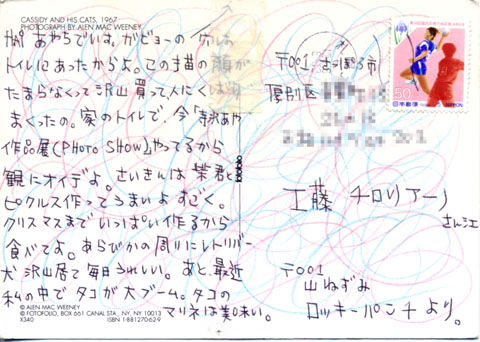 CASSIDY AND HIS CATS, 1967
PHOTOGRAPH BY ALEN MAC WEENEY
あやちでいは。ガビョーの穴は
トイレにあったからよ。この猫の顔が
たまらなくって沢山買って人にくばり
まくったの。家のトイレで、今「寺沢あや
作品展(PHOTO SHOW)」やってるから
観にオイデよ。さいきんは栄君と
ピクルス作ってうまいよすごく。
クリスマスまでいっぱい作るから
食べてよ。あらびかの周りにレトリバー
犬沢山居て毎日うれしい。あと、最近
私の中でタコが大ブーム。タコの
マリネは美味い。
© ALEN MAC WEENEY
© FOTOFOLIO, BOX 661 CANAL STA., NY, NY 10013
X340 ISBN 1-881270-62-9
50
日本郵便 NIPPON
〒001 さっぽろ市
厚別区
工藤 チロリアーノ
さん江
〒001
山ねずみ
ロッキーパンチより。